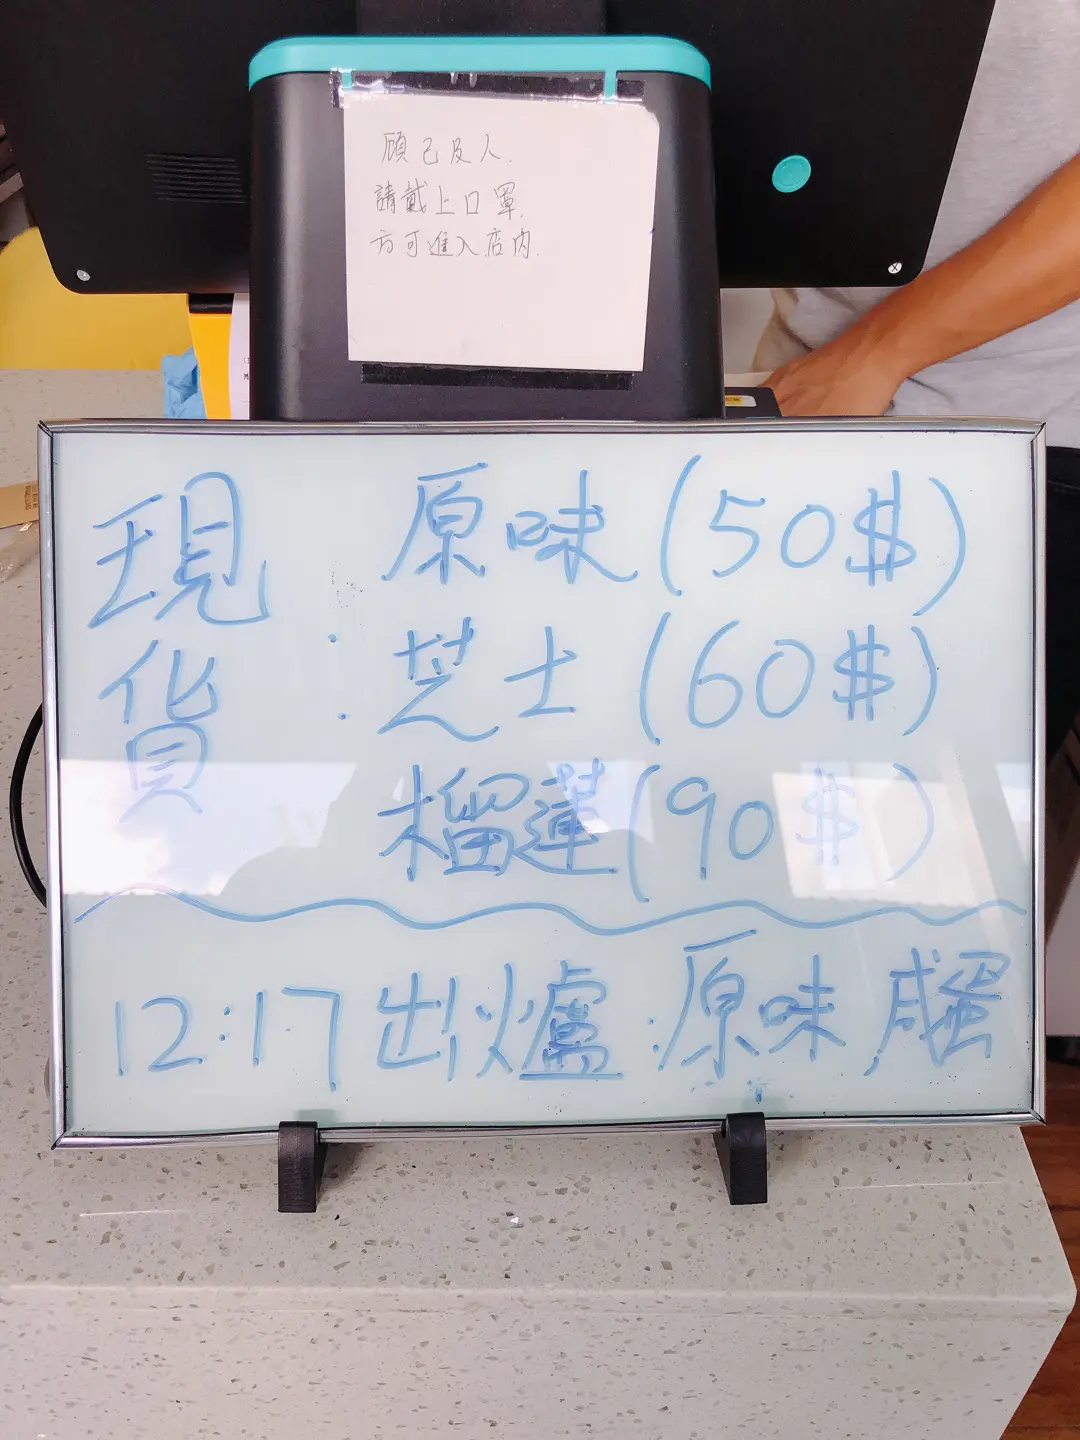 顧己及人.
請戴上口罩.
方可進入店內.
現貨：原味(50$)
芝士(60$)
榴蓮(90$)
12:17出爐:原味 咸蛋